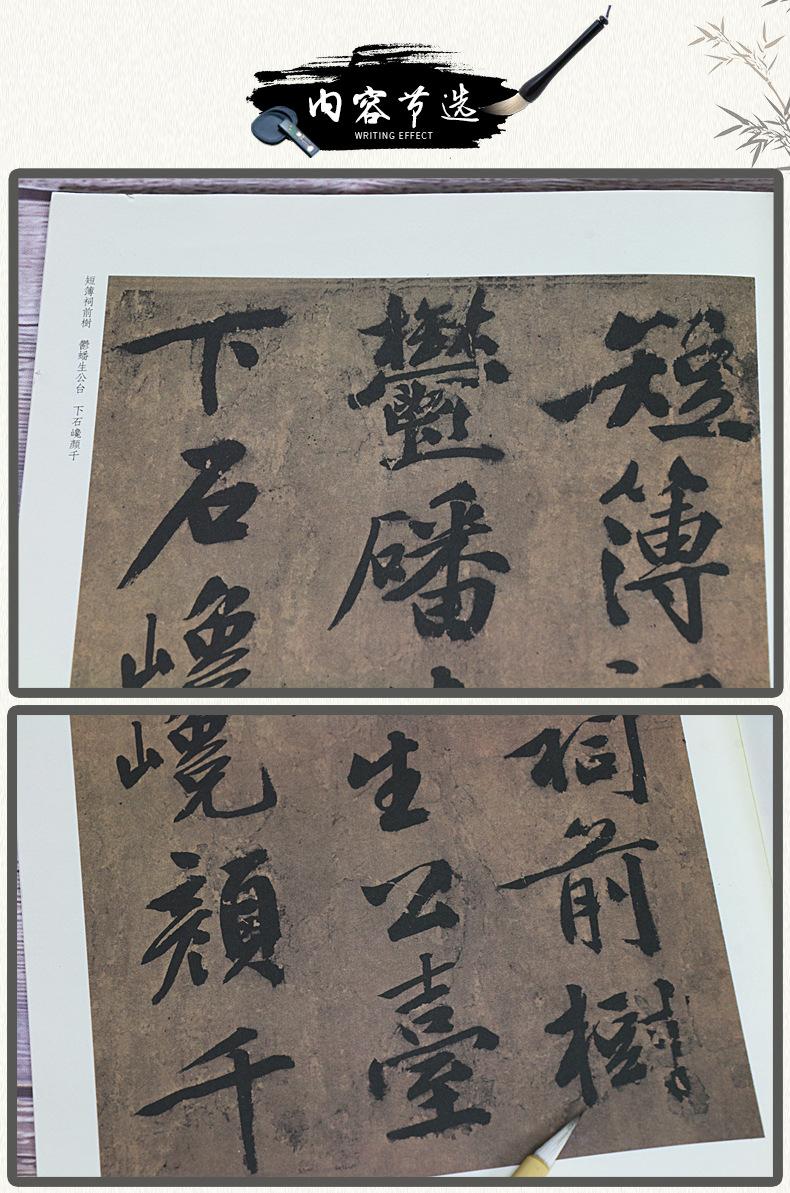 内容节选
WRITING EFFECT
短簿祠前樹 鬱蟠生公台 下石巉顏千
短簿祠
鬱磻
下石巉
祠前樹
生公臺
巉顏千